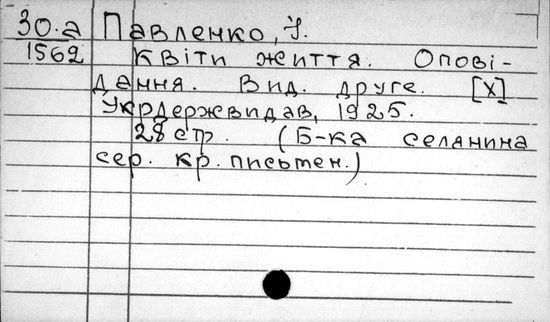 30.а Павленко, І.
1562 Квіти життя. Опові-
дання. Вид. друге. [Х]
Укрдержвидав, 1925.
28 стр. (Б-ка селянина
сер. кр. письмен.)